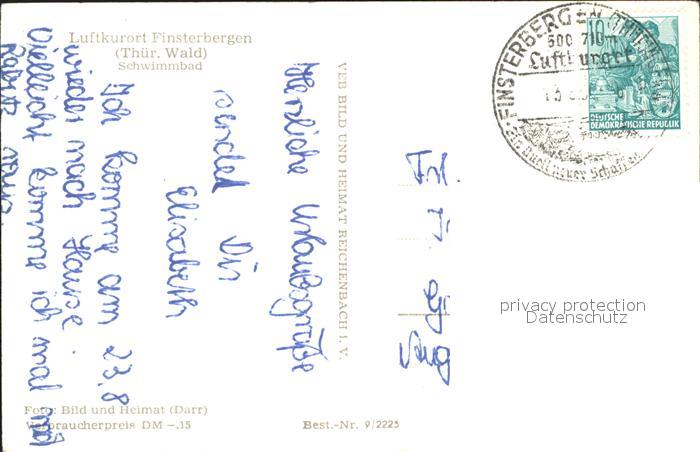 Luftkurort Finsterbergen
(Thür. Wald)
Schwimmbad
Herzliche Urlaubsgrüße
sendet Dir
Elisabeth
Ich komme am 23.8
wieder nach Hause.
Vielleicht komme ich mal mit
VEB BILD UND HEIMAT REICHENBACH i. V.
Frl.
FINSTERBERGEN (THÜR
500 710m
Luftkurort
Ein Quell neuer Schaffens
10
DEUTSCHE
DEMOKRATISCHE REPUBLIK
privacy protection
Datenschutz
Foto: Bild und Heimat (Darr)
Verbraucherpreis DM -.15
Best.-Nr. 9/2225